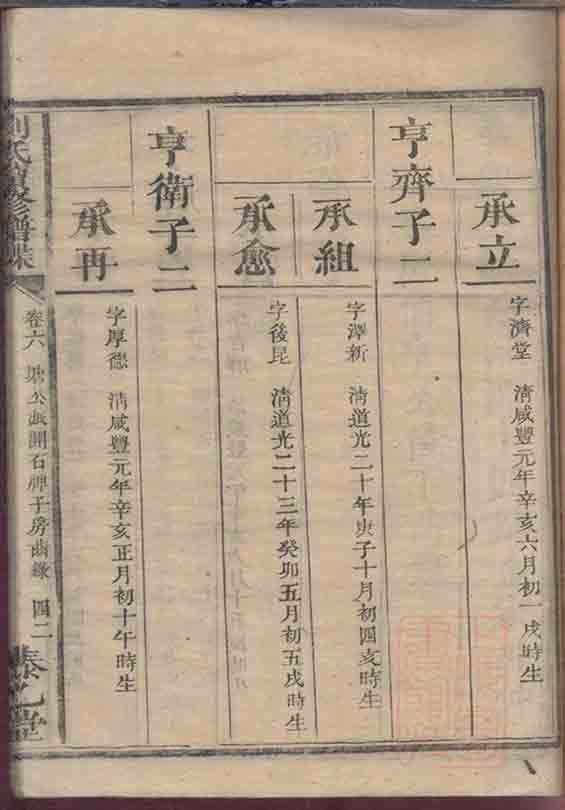 承立
字濟堂 清咸豐元年辛亥六月初一戌時生
亨齊子二
承組
字澤新 清道光二十年庚子十月初四亥時生
承愈
字後昆 清道光二十三年癸卯五月初五戌時生
亨衛子二
承再
字厚德 清咸豐元年辛亥正月初十午時生
氏 修譜牒
卷六 公派開石牌子房齒錄 四二
堂